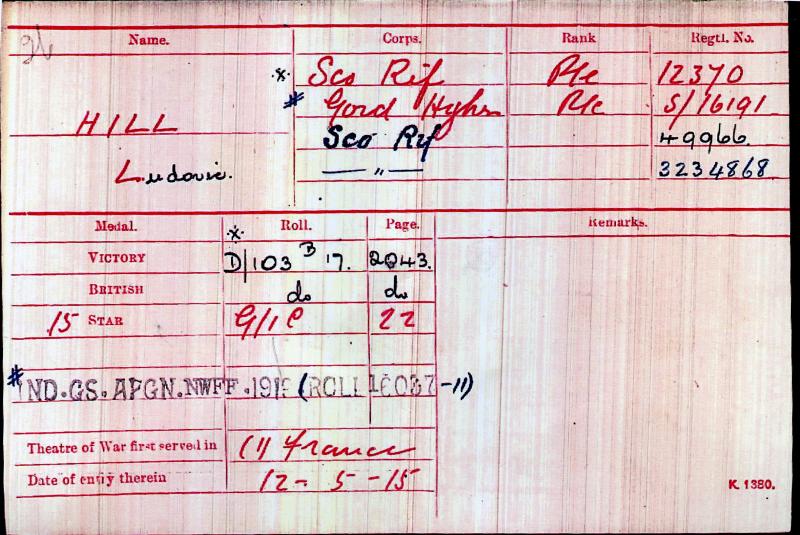 Name. Corps. Rank Regtl. No.
* Sco Rif Pte 12370
# Gord Highrs Pte S/16191
HILL
Sco Rif 49966.
Ludovic. — " — 3234868
Medal. * Roll. Page. Remarks.
VICTORY D/103 B 17. 2043.
BRITISH do do
15 STAR G/1 C 22
# IND.GS. AFGN.NWFF.1919 (ROLL 16037-11)
Theatre of War first served in (1) France
Date of entry therein 12 - 5 - 15
K. 1380.